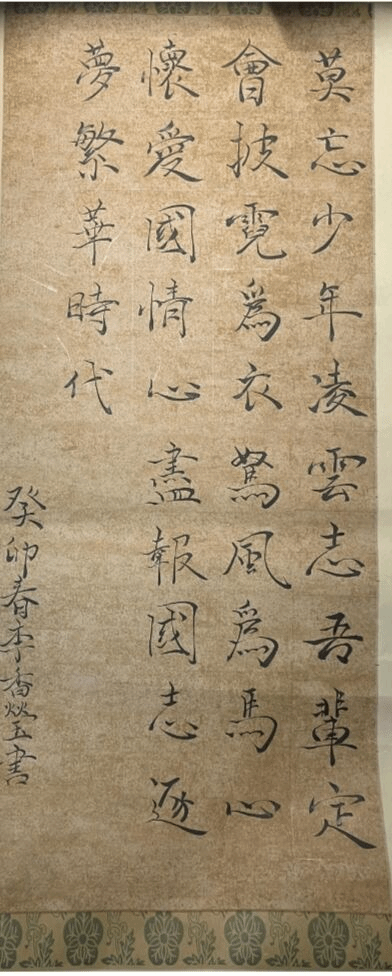 莫忘少年凌雲志吾輩定
會披霓爲衣駕風爲馬心
懷愛國情心盡報國志逐
夢繁華時代
癸卯春李香燚玉書